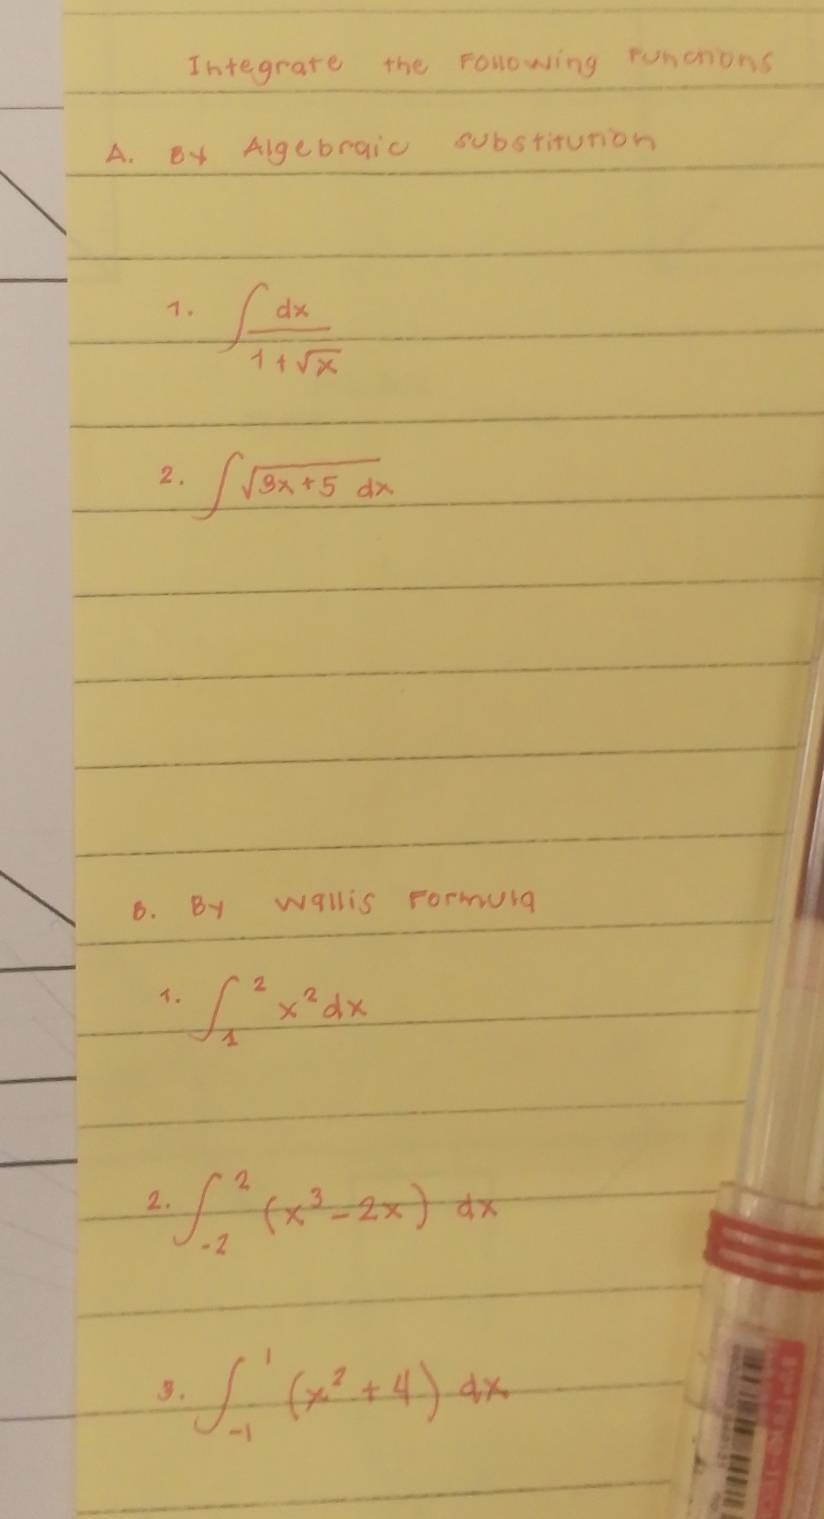 Integrate the Following Functions
A. By Algebraic substitution
1. ∫ dx / 1 + √x
2. ∫ √3x + 5 dx
B. By Wallis Formula
1. ∫₁² x² dx
2. ∫₋₂² (x³ - 2x) dx
3. ∫₋₁¹ (x² + 4) dx